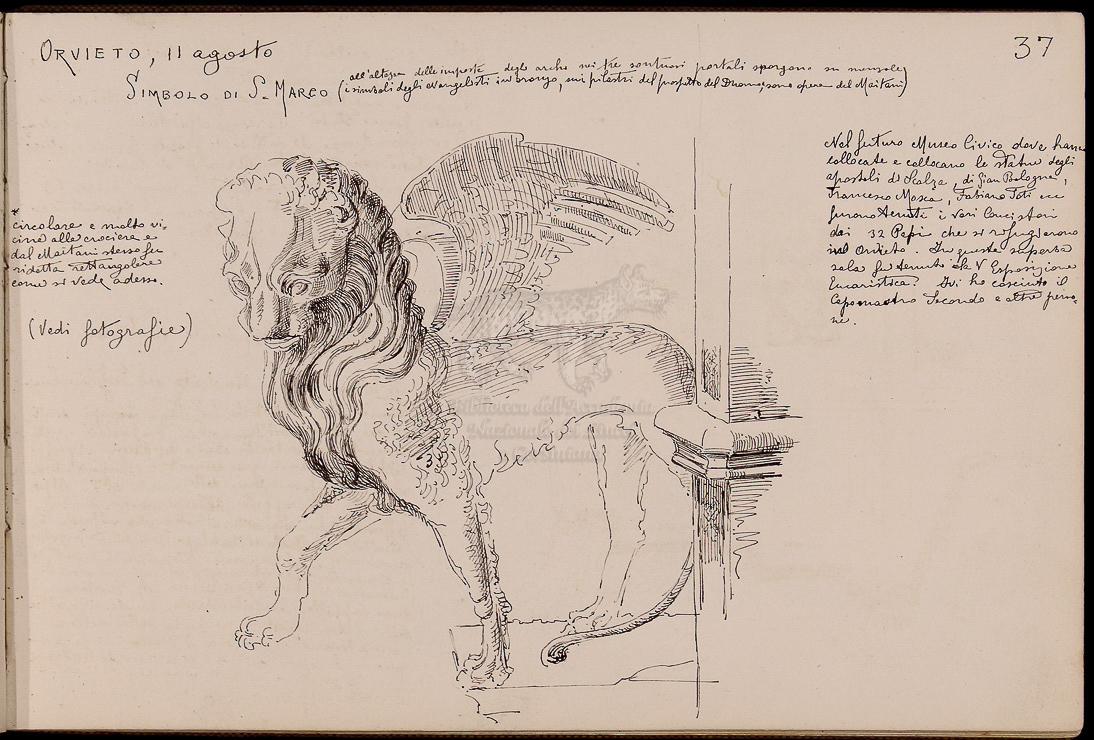 ORVIETO, 11 agosto
37
SIMBOLO DI S. MARCO (all'altezza delle imposte degli archi nei tre sontuosi portali sporgono su mensole
i simboli degli evangelisti in bronzo, sui pilastri del prospetto del Duomo, sono opera del Maitani)
Nel futuro Museo Civico dove hanno
collocate e collocano le statue degli
apostoli di Scalza, di Gian Bologna,
Francesco Mosca, Fabiano Toti
furono tenuti i vari Concistori
dai 32 Papi che si rifugiarono
in Orvieto. In questa superba
sala fu tenuto il V Esposizione
Eucaristica. Ivi ho conosciuto il
Capomastro Secondo e altre perso-
ne.
* circolare e molto vi-
cino alla crociera e
dal Maitani stesso fu
ridotta rettangolare
come si vede adesso.
(Vedi fotografie)
Biblioteca dell'Accademia
Nazionale di San Luca